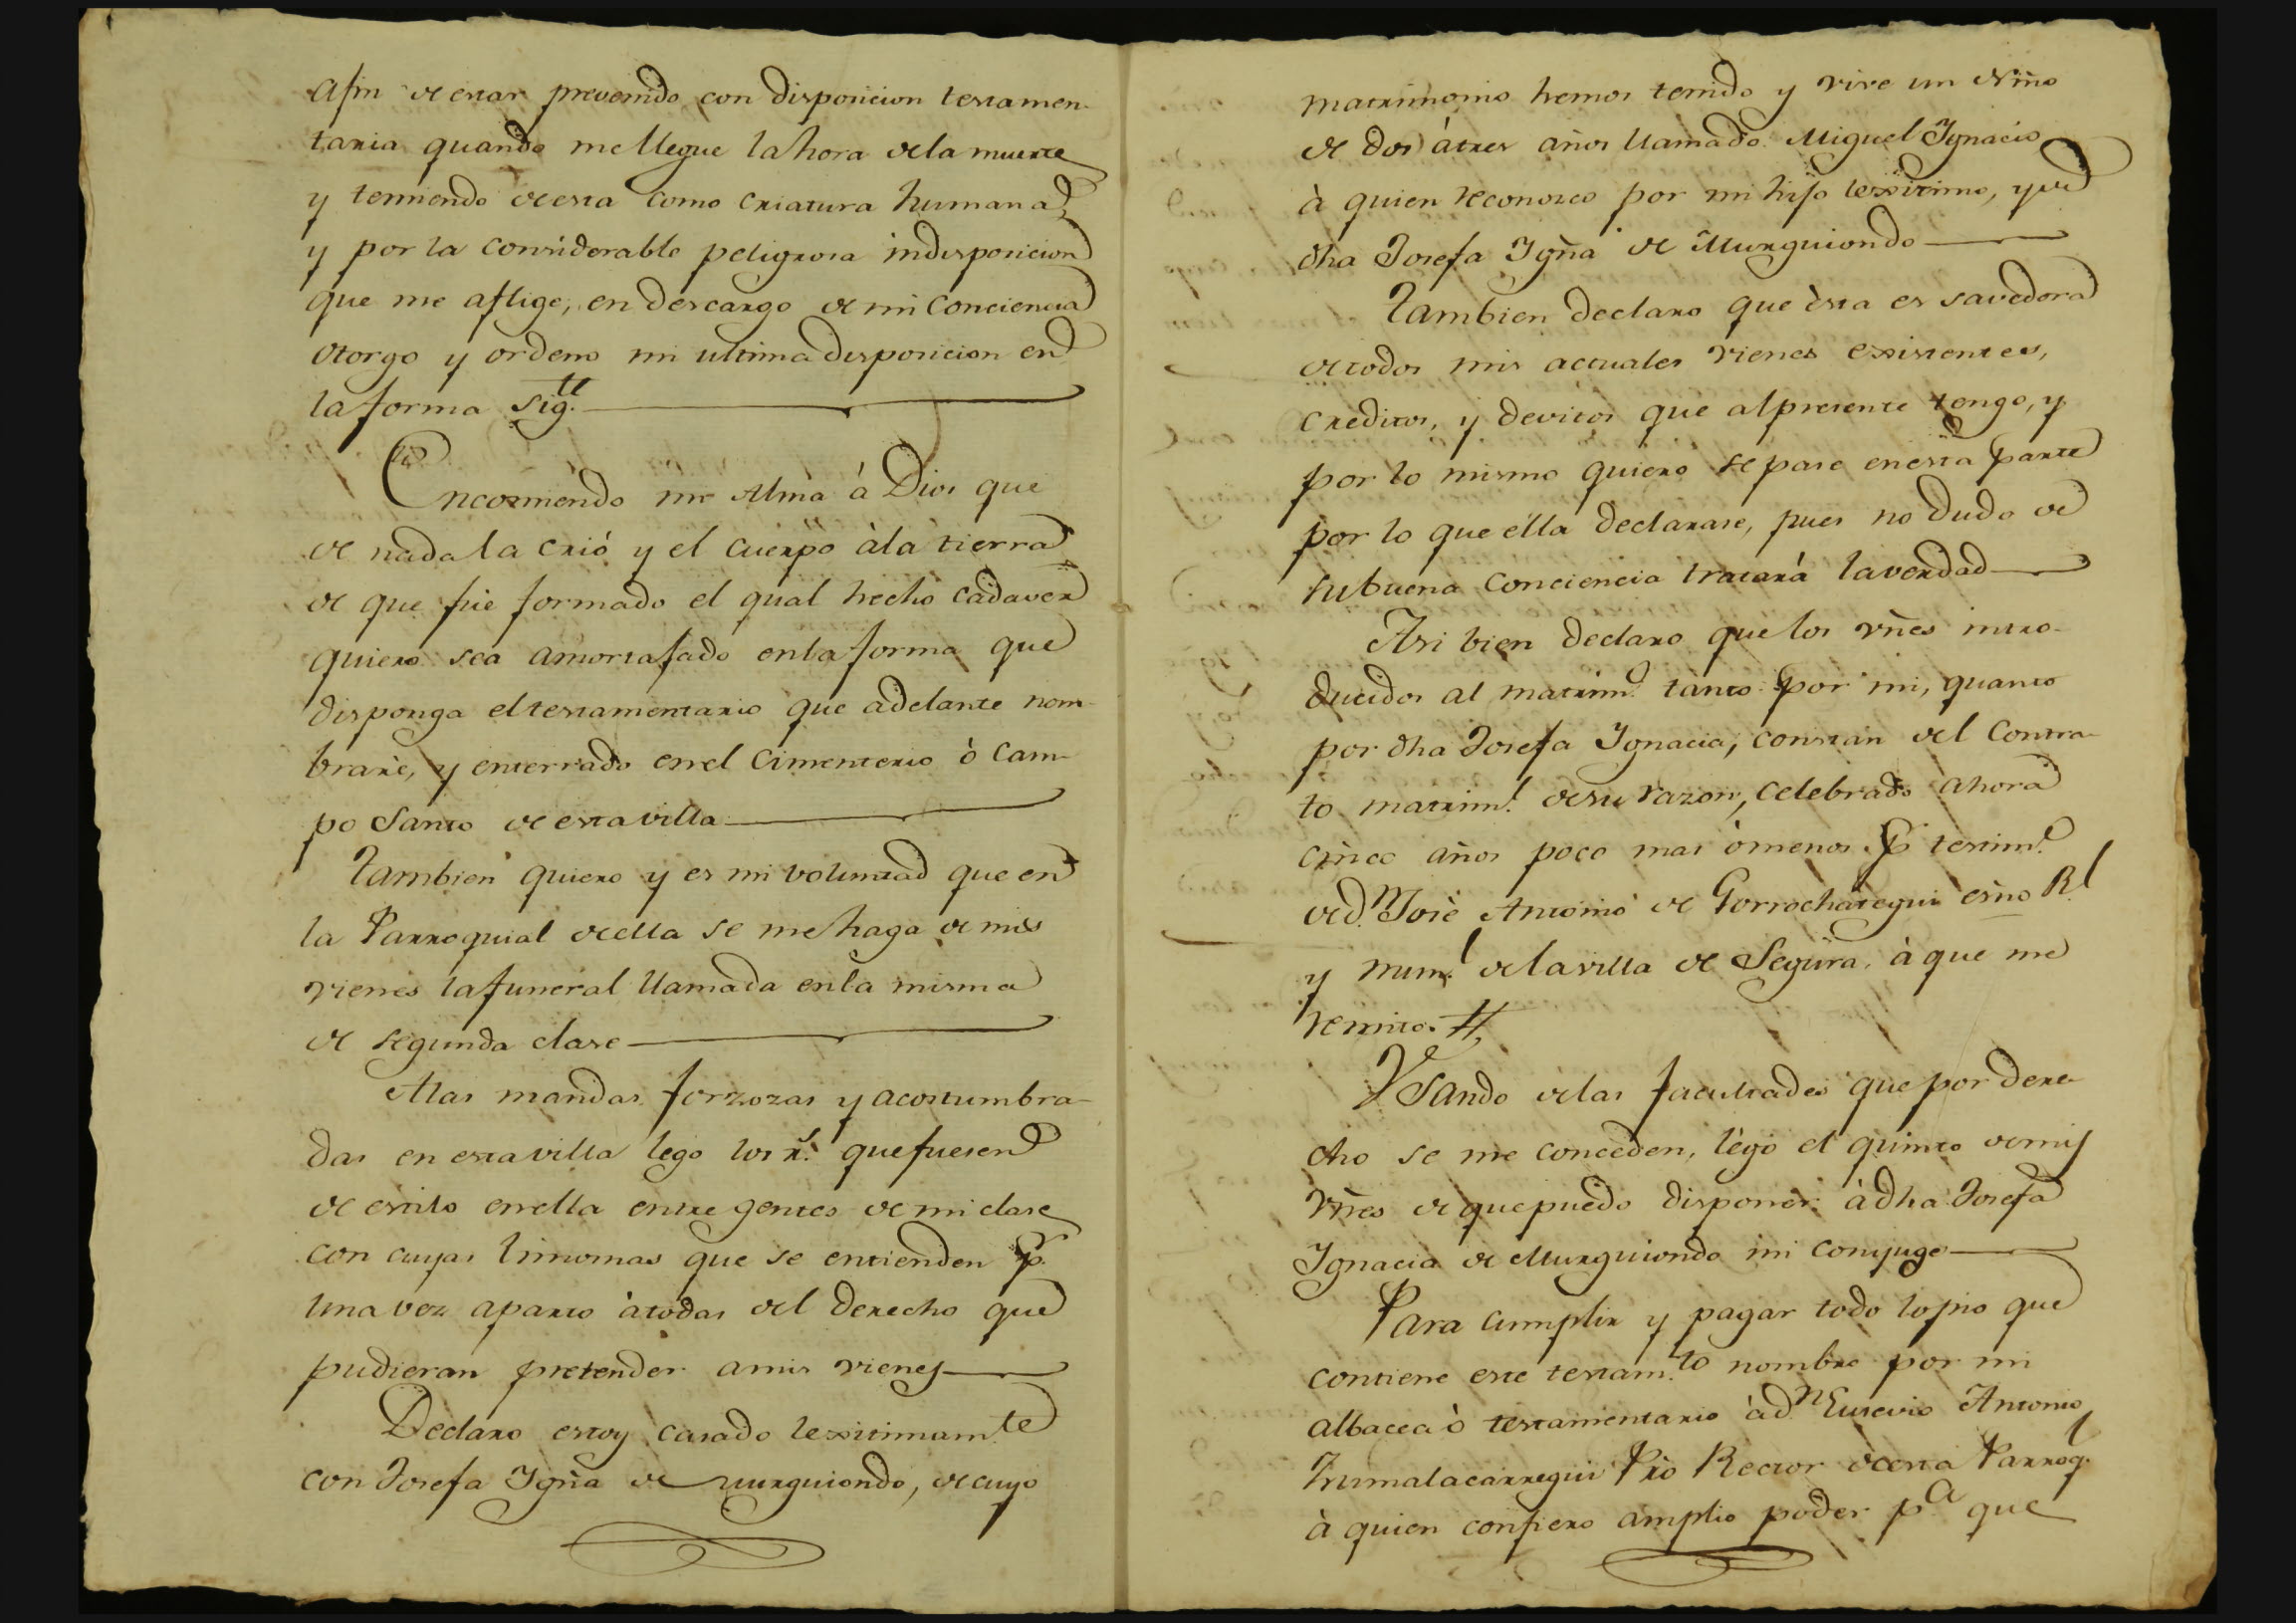 Afin de estar prevenido con disposicion testamen-
taria quando me llegue la hora de la muerte
y temiendo de esta como criatura humana
y por la considerable peligrosa indisposicion
que me aflige, en descargo de mi conciencia
otorgo y ordeno mi ultima disposicion en
la forma sig.te
Encomiendo mi Alma á Dios que
de nada la crió y el cuerpo àla tierra
de que fue formado el qual hecho cadaver
quiero sea amortajado en la forma que
disponga el testamentario que adelante nom-
braré, y enterrado en el Cimenterio ò Cam-
po Santo de esta villa
Tambien quiero y es mi voluntad que en
la Parroquial de ella se me haga de mis
vienes la funeral llamada en la misma
de segunda clase
A las mandas forzozas y acostumbra-
das en esta villa lego los r.s que fuesen
de estilo en ella entre gentes de mi clase
con cuyas limosnas que se entienden p.r
una vez aparto àtodas del derecho que
pudieran pretender a mis vienes
Declaro estoy casado lexitimam.te
con Josefa Ygña de Murguiondo, de cuyo
matrimonio hemos tenido y vive un Niño
de dos átres años llamado Miguel Ygnacio
à quien reconosco por mi hijo lexitimo, y de
dha Josefa Ygña de Murguiondo
Tambien declaro que ésta es savedora
de todos mis actuales vienes existentes,
creditos, y devitos que al presente tengo, y
por lo mismo quiero se pase en esta parte
por lo que élla declarase, pues no dudo de
su buena conciencia tratará la verdad
Asi bien declaro que los vñes intro-
ducidos al matrim.o tanto por mi, quanto
por dha Josefa Ygnacia, constan del Contra-
to matrim.l de su razon, celebrado ahora
cinco años poco mas ómenos p.r testim.o
de d.n José Antonio de Gorrochategui esño R.l
y num.l de la villa de Segura, à que me
remito.
Vsando de las facultades que por dere-
cho se me conceden, légo el quinto de mis
vñes de que puedo disponer à dha Josefa
Ygnacia de Murguiondo mi conjuge
Para cumplir y pagar todo lo pio que
contiene este testam.to nombro por mi
albacea ò testamentario àd.n Eusevio Antonio
Zumalacarregui Pro Rector de esta Parroq.l
à quien confiero amplio poder p.a que